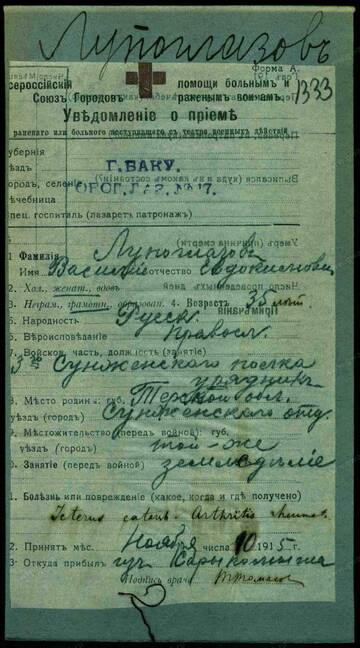 Лупоглазовъ
Форма А.
сероссійскій помощи больнымъ и
Союзъ Городовъ раненымъ воинамъ. 1333
Увѣдомленіе о пріемѣ
раненаго или больного поступающаго съ театра военныхъ дѣйствій
убернія
ѣздъ Г. БАКУ.
ородъ, селеніе
ечебница
пец. госпиталь (лазаретъ патронажъ)
1 Фамилія Лупоглазовъ
Имя Василій отчество Евдокимовичъ
2. Хол., женат., вдовъ
3. Неграм., грамотн., образован. 4. Возрастъ 35 лѣтъ
5. Народность Русск.
6. Вѣроисповѣданіе Правосл.
7. Войсков. часть, должность (занятіе)
3го Сунженскаго полка
урядникъ
8. Мѣсто родины: губ. Терской обл.
уѣздъ (городъ) Сунженскаго отд.
9. Мѣстожительство (передъ войной): губ.
уѣздъ (городъ) той-же
0. Занятіе (передъ войной) земледѣліе
1. Болѣзнь или поврежденіе (какое, когда и гдѣ получено)
Icterus catarrh. Arthritis rheumat.
2. Принятъ мѣс. Ноября числа 10 1915 г.
3. Откуда прибылъ изъ Сарыкамыша
Подпись врача